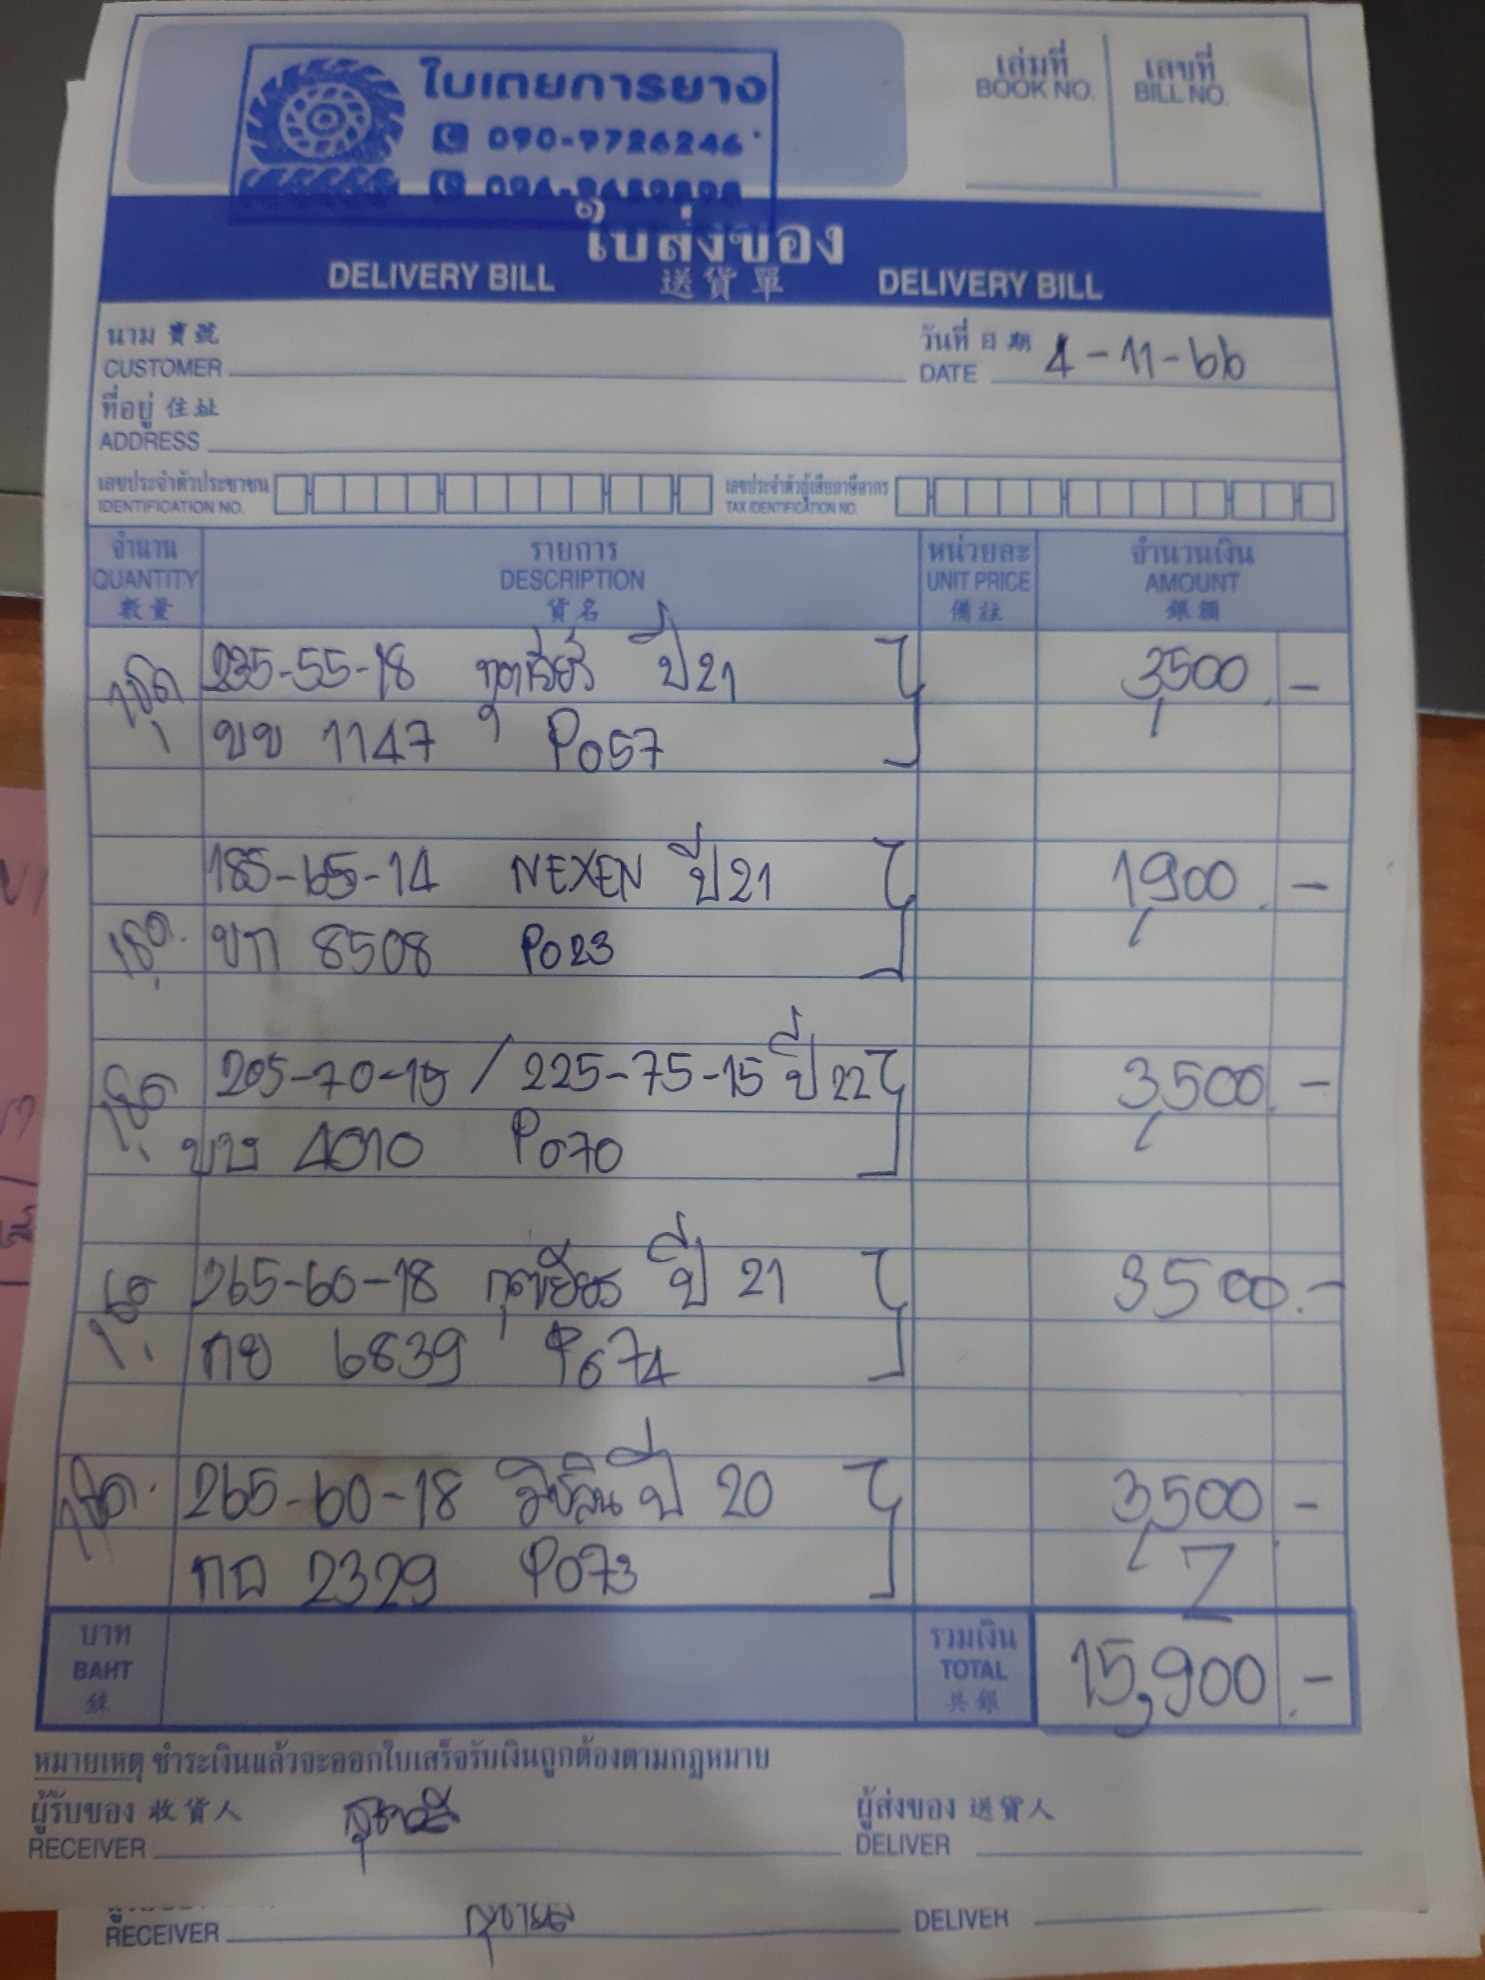 ใบเตยการยาง
090-9726246
ใบส่งของ
DELIVERY BILL 送貨單 DELIVERY BILL
เล่มที่ เลขที่
BOOK NO. BILL NO.
นาม 寶號
CUSTOMER
วันที่ 日期
DATE 4-11-66
ที่อยู่ 住址
ADDRESS
เลขประจำตัวประชาชน เลขประจำตัวผู้เสียภาษีอากร
IDENTIFICATION NO. TAX IDENTIFICATION NO.
จำนวน รายการ หน่วยละ จำนวนเงิน
QUANTITY DESCRIPTION UNIT PRICE AMOUNT
數量 貨名 備註 銀額
1ชุด 235-55-18 ปี 21 3,500 -
ขข 1147 P057
185-65-14 NEXEN ปี 21 1,900 -
1ชุด. ขก 8508 P023
1ชุด 205-70-15 / 225-75-15 ปี 22 3,500.-
4010 P070
1ชุด 265-60-18 ปี 21 3500.-
กย 6839 P074
1ชุด. 265-60-18 มิชลิน ปี 20 3,500 -
2329 P073
บาท รวมเงิน
BAHT TOTAL 15,900.-
銖 共銀
หมายเหตุ ชำระเงินแล้วจะออกใบเสร็จรับเงินถูกต้องตามกฎหมาย
ผู้รับของ 收貨人 ผู้ส่งของ 送貨人
RECEIVER DELIVER
RECEIVER DELIVER